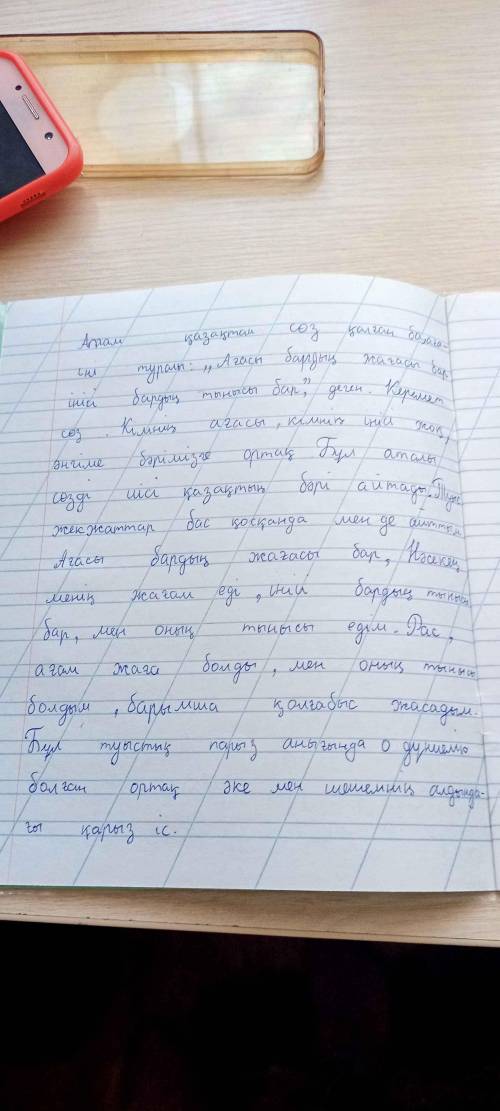 Атам қазақтан сөз қалған
іні туралы: „Ағасы бардың жағасы бар,
інісі бардың тынысы бар", деген. Керемет
сөз. Кімнің ағасы, кімнің інісі жоқ,
әңгіме бәрімізге ортақ Бұл аталы
сөзді иісі қазақтың бәрі айтады.
жекжаттар бас қосқанда мен де айттым
Ағасы бардың жағасы бар,
менің жағам еді, інісі бардың тынысы
бар, мен оның тынысы едім. Рас,
ағам жаға болды, мен оның тынысы
болдым, барымша қолғабыс жасадым.
Бұл туыстық парыз анығында о дүниелік
болған ортақ әке мен шешемнің алдында-
ғы қарыз іс.